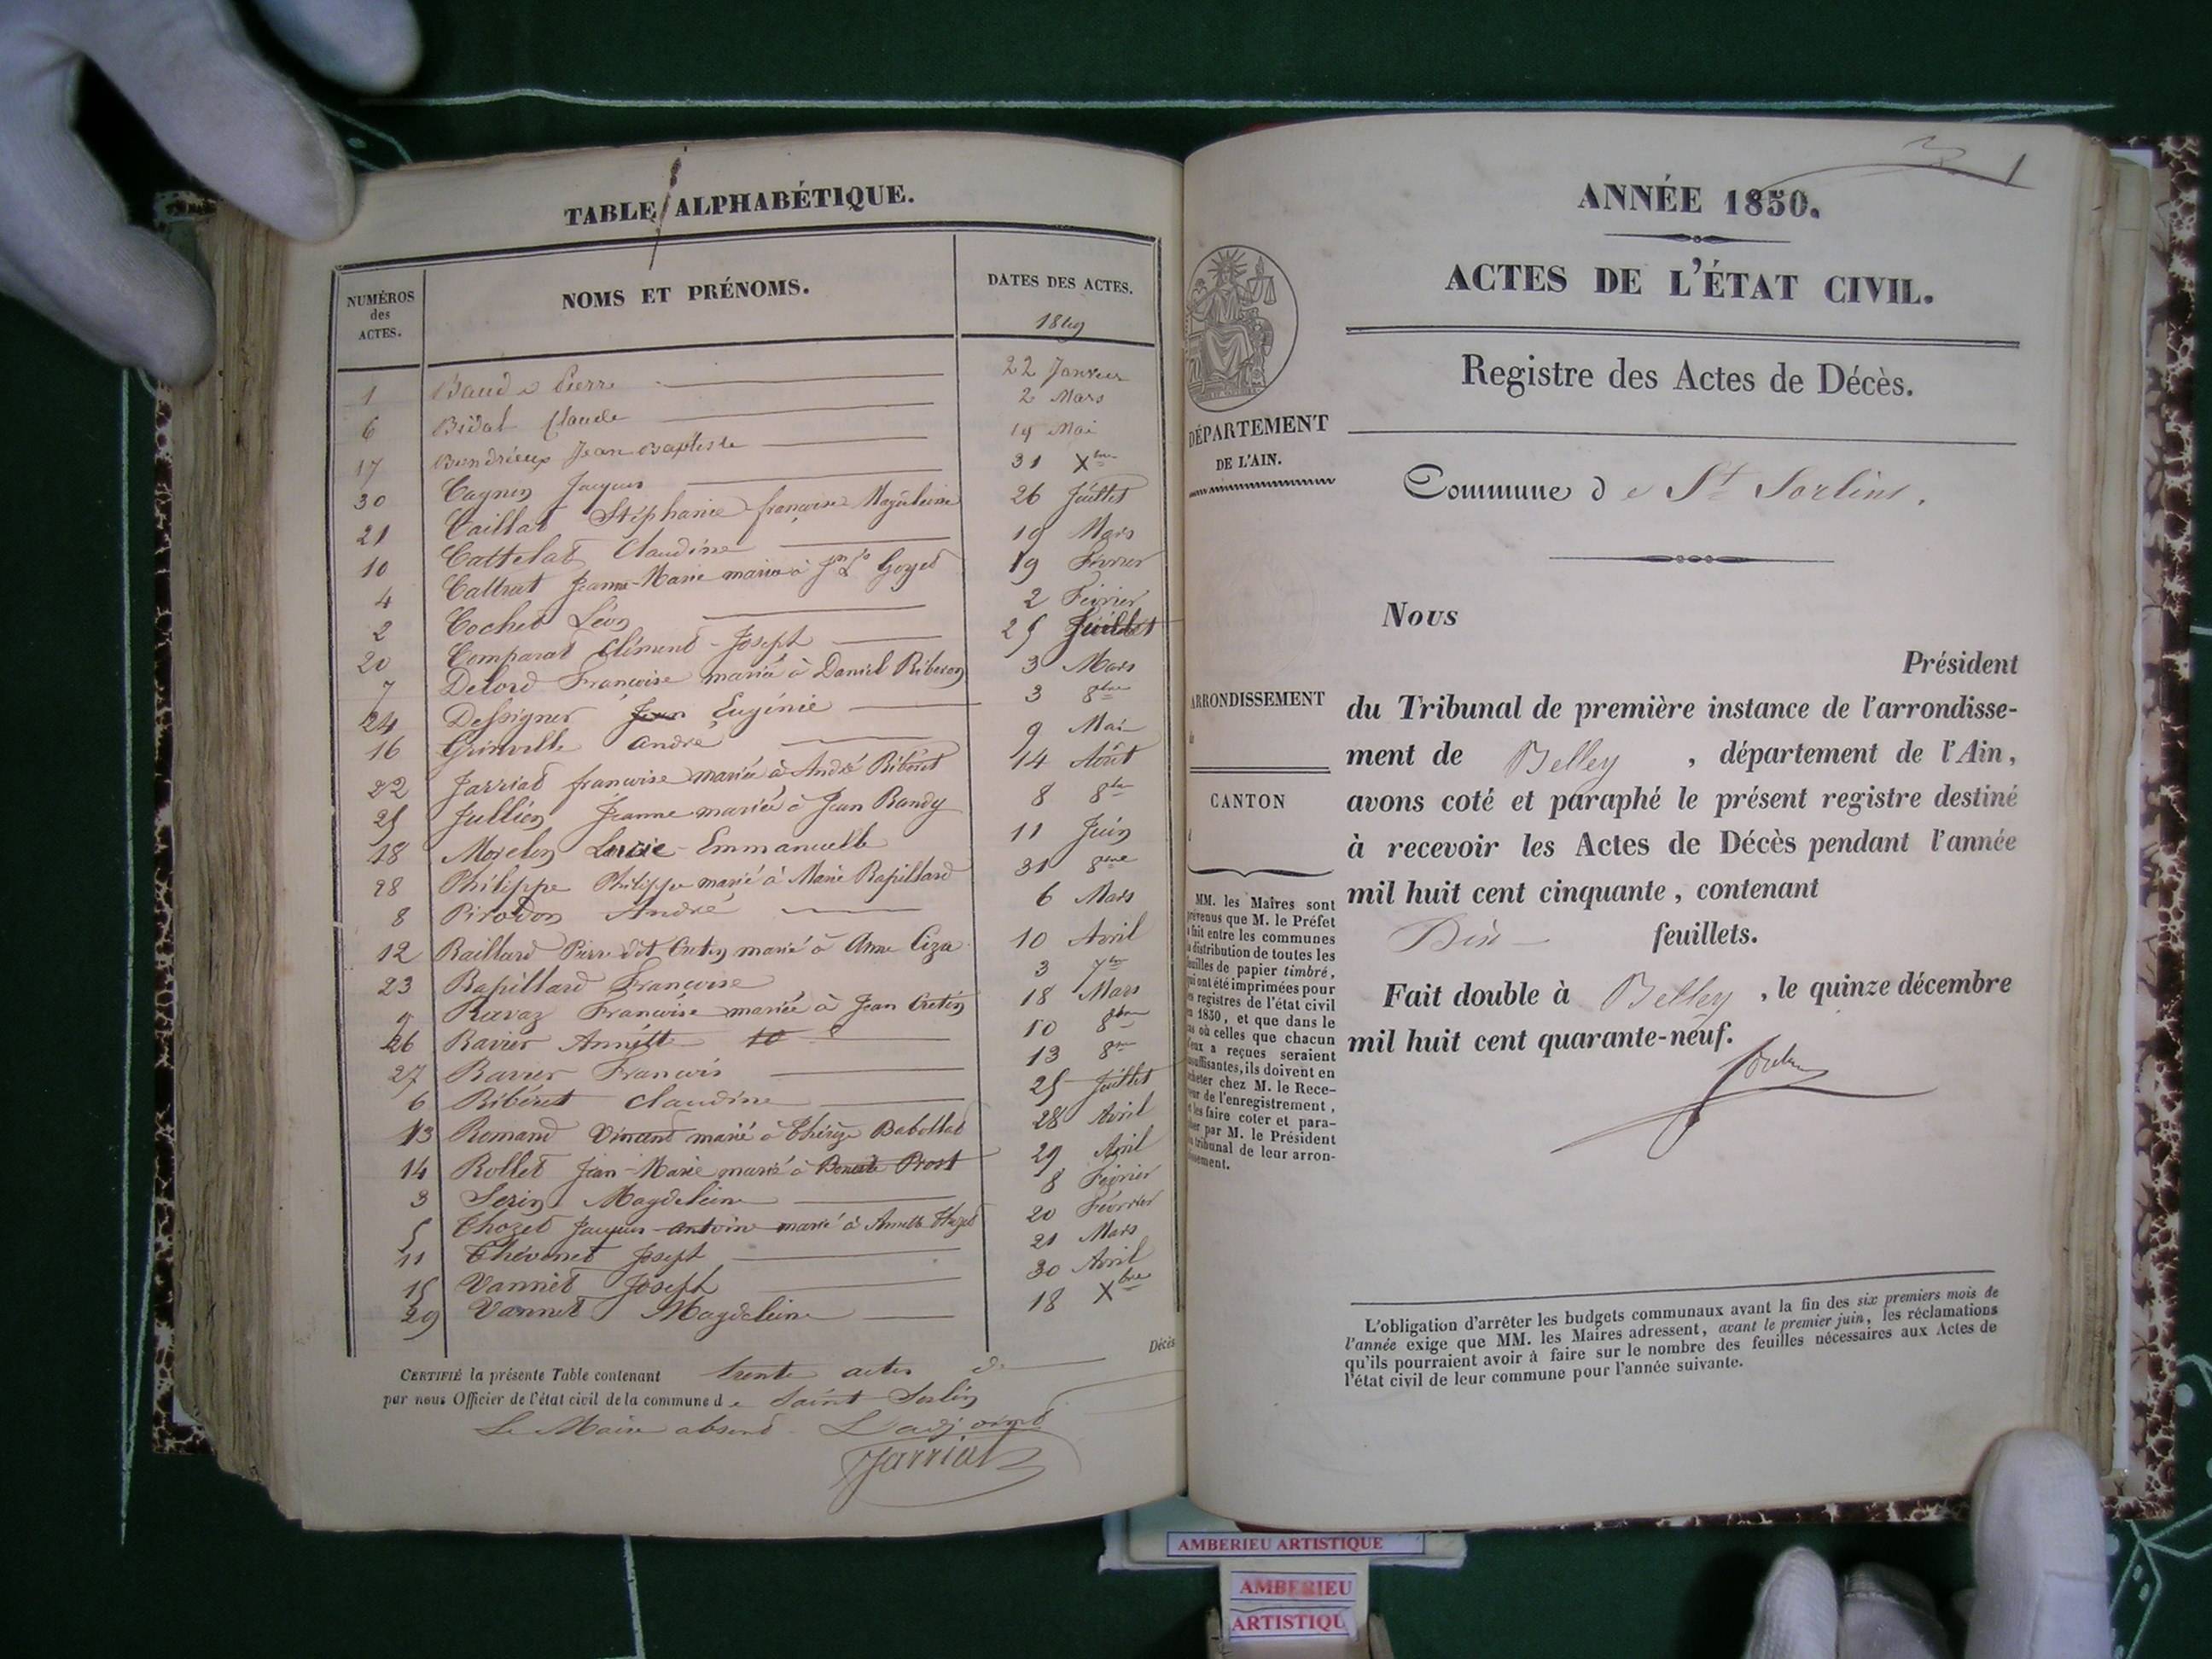 TABLE ALPHABÉTIQUE.
NUMÉROS des ACTES.
NOMS ET PRÉNOMS.
DATES DES ACTES.
1849
1 Baude Pierre 22 Janvier
6 Bidal Claude 2 Mars
17 Bondrieux Jean Baptiste 19 Mai
30 Cagnin Jacques 31 Xbre
21 Caillat Stéphanie françoise Magdeleine 26 Juillet
10 Cattelat Claudine 19 Mars
4 Cattrat Jeanne-Marie mariée à Goyet 19 Février
2 Cochet Léon 2 Février
20 Comparat Clément-Joseph 25 Juillet
7 Delord Françoise mariée à Daniel Riberon 3 Mars
24 Dessigner Eugénie 3 8bre
16 Grinville André 9 Mai
22 Jarriat françoise mariée à André Ribéret 14 Août
25 Jullien Jeanne mariée à Jean Randy 8 8bre
18 Morelon Lucie-Emmanuelle 11 Juin
28 Philippe Philippe marié à Marie Rapillard 31 8bre
8 Pirodon André 6 Mars
12 Raillard Pierre dit Cretin marié à Anne Ciza 10 Avril
23 Rapillard Françoise 3 7bre
9 Ravaz Françoise mariée à Jean Cretin 18 Mars
26 Ravier Annette 10 8bre
27 Ravier François 13 8bre
6 Ribéret Claudine 25 Juillet
13 Romand Vincent marié à Thérèze Babollat 28 Avril
14 Rollet Jean-Marie marié à Benoite Prost 29 Avril
3 Serin Magdeleine 8 Février
5 Thozet Jacques-Antoine marié à Annette Thozet 20 Février
11 Thévenet Joseph 21 Mars
15 Vannet Joseph 30 Avril
29 Vannet Magdeleine 18 Xbre
Décès
CERTIFIÉ la présente Table contenant trente actes de
par nous Officier de l'état civil de la commune de Saint Sorlin
Le Maire absent L'adjoint
Jarriat
1
ANNÉE 1850.
ACTES DE L'ÉTAT CIVIL.
Registre des Actes de Décès.
DÉPARTEMENT
DE L'AIN.
Commune de St Sorlin.
Nous
Président
ARRONDISSEMENT
du Tribunal de première instance de l'arrondisse-
ment de Belley, département de l'Ain,
CANTON
avons coté et paraphé le présent registre destiné
à recevoir les Actes de Décès pendant l'année
mil huit cent cinquante, contenant
Dix feuillets.
Fait double à Belley, le quinze décembre
mil huit cent quarante-neuf.
MM. les Maires sont
prévenus que M. le Préfet
a fait entre les communes
la distribution de toutes les
feuilles de papier timbré,
qui ont été imprimées pour
les registres de l'état civil
en 1850, et que dans le
cas où celles que chacun
d'eux a reçues seraient
insuffisantes, ils doivent en
acheter chez M. le Rece-
veur de l'enregistrement,
et les faire coter et para-
pher par M. le Président
du tribunal de leur arron-
dissement.
L'obligation d'arrêter les budgets communaux avant la fin des six premiers mois de
l'année exige que MM. les Maires adressent, avant le premier juin, les réclamations
qu'ils pourraient avoir à faire sur le nombre des feuilles nécessaires aux Actes de
l'état civil de leur commune pour l'année suivante.
AMBERIEU ARTISTIQUE
AMBERIEU
ARTISTIQU